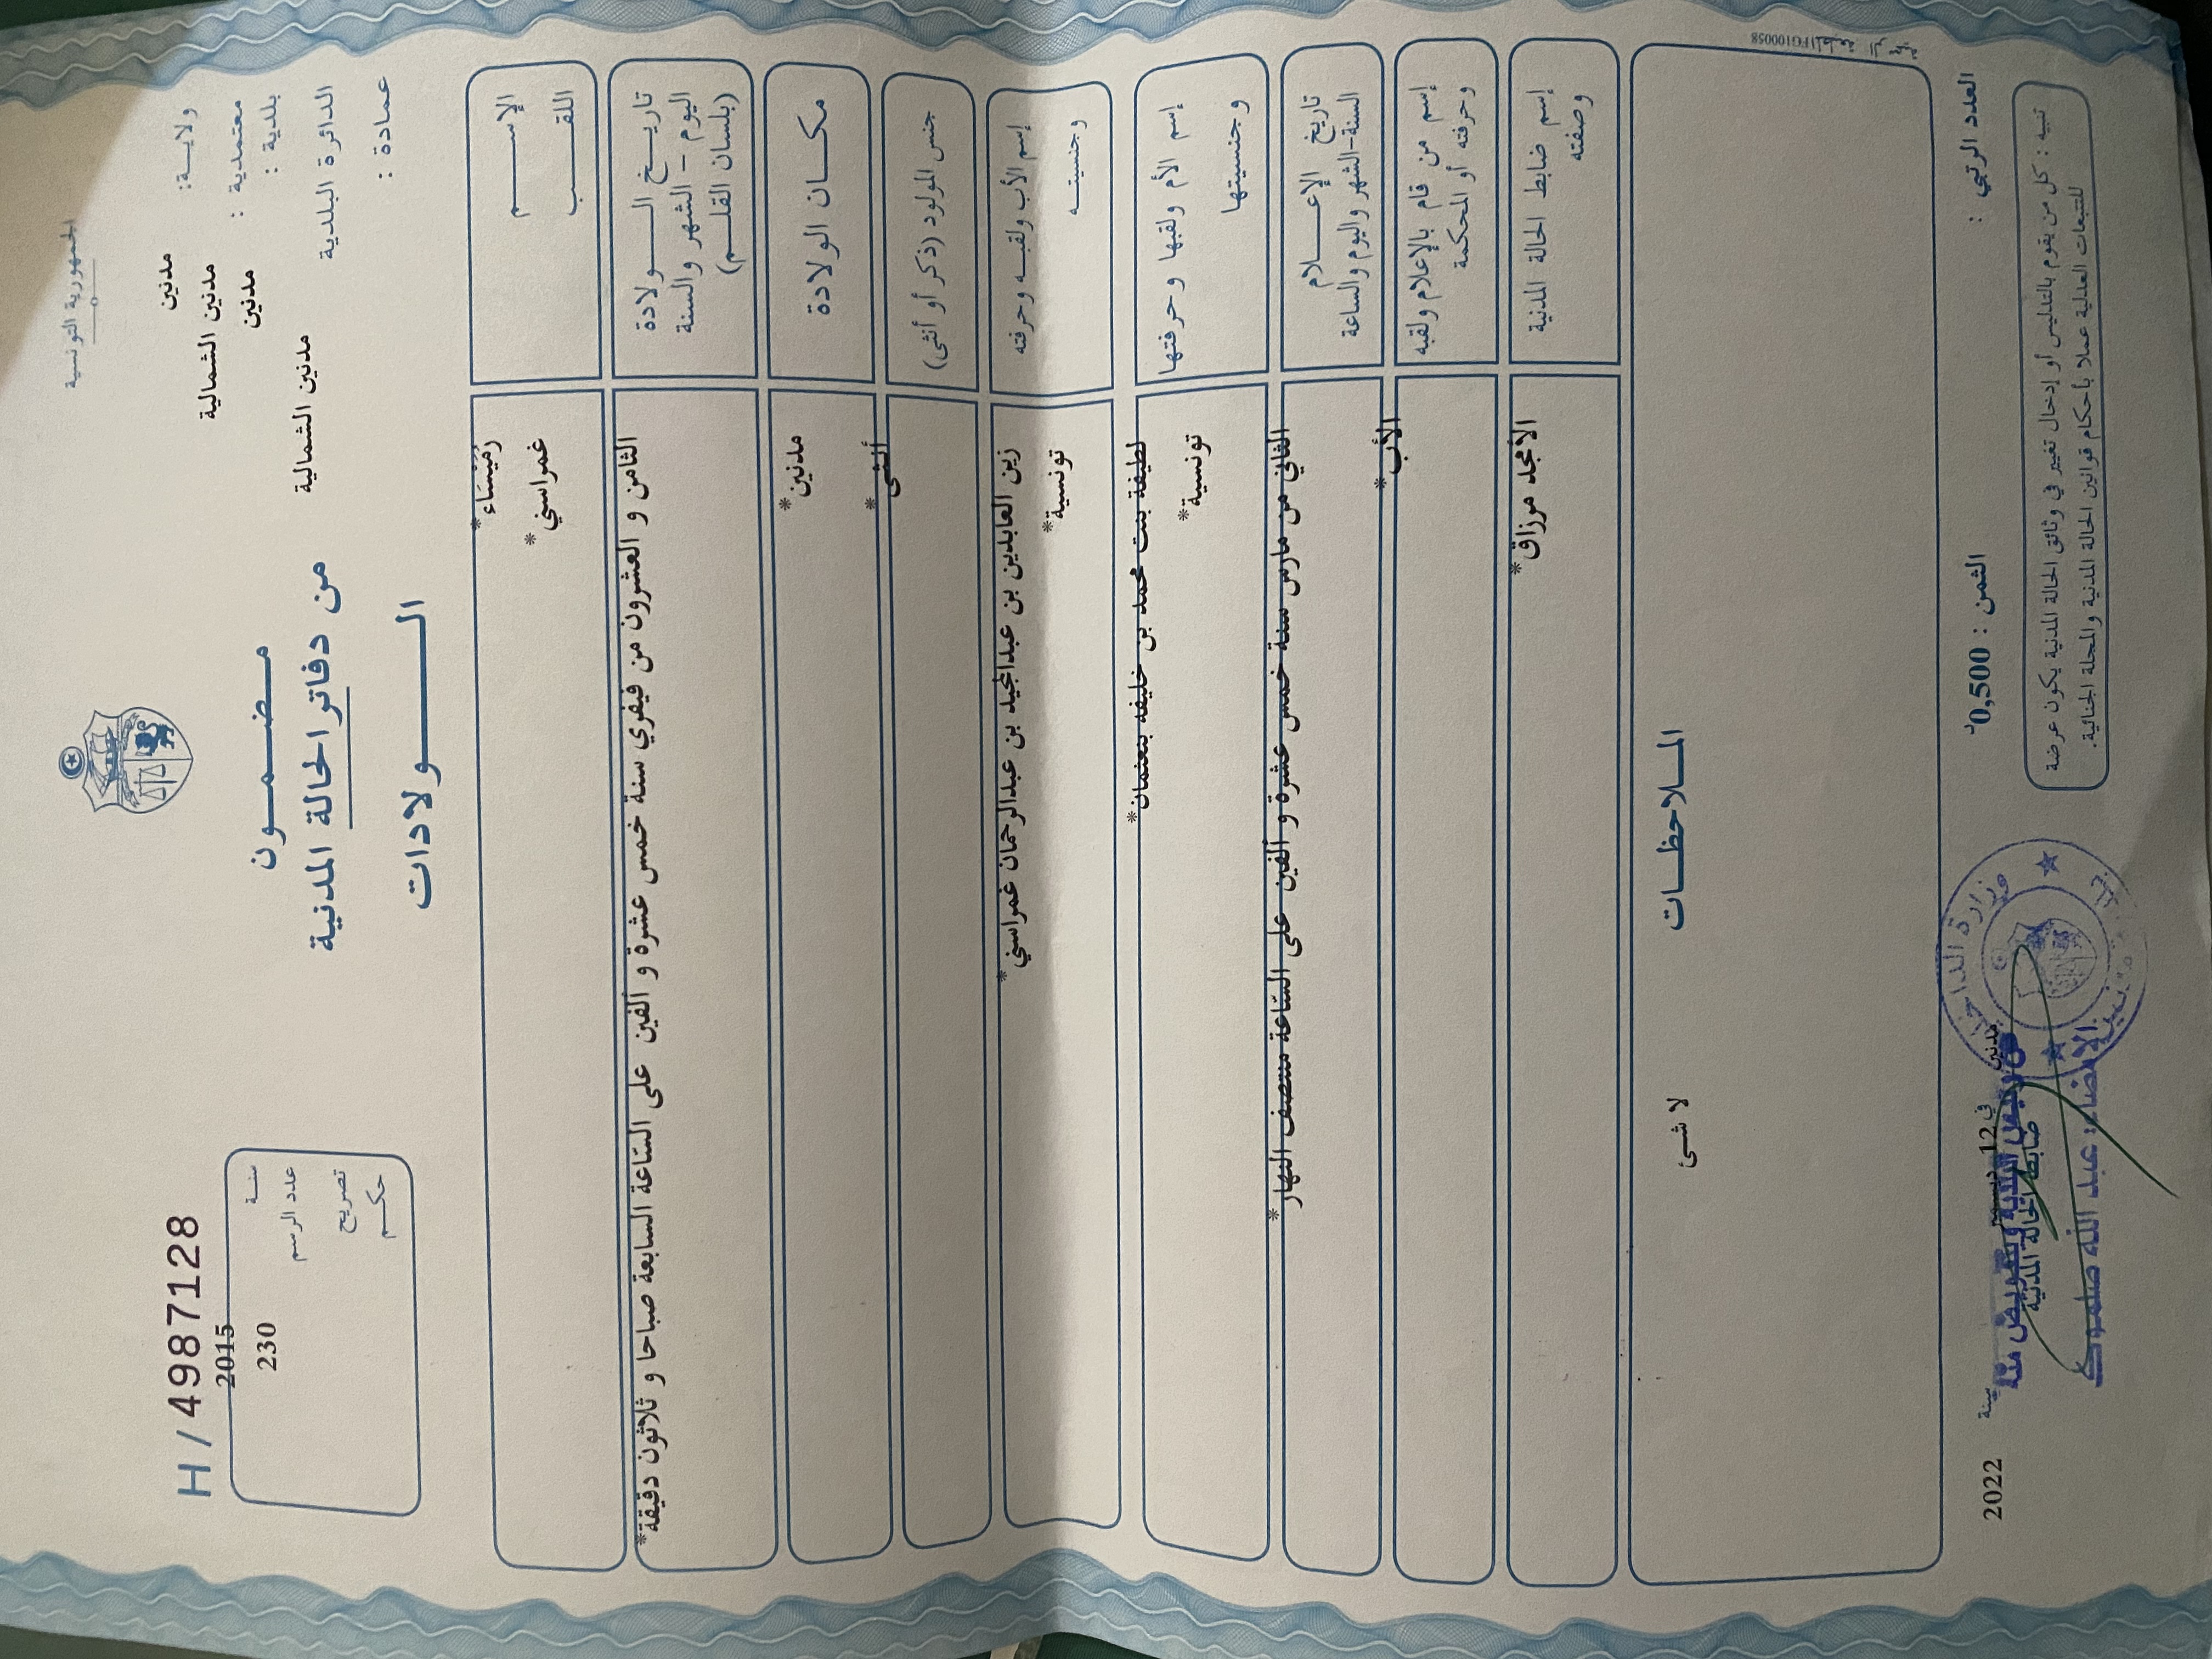 الجمهورية التونسية
ولاية: مدنين
معتمدية : مدنين الشمالية
بلدية : مدنين
الدائرة البلدية مدنين الشمالية
عمادة :
مضمون
من دفاتر الحالة المدنية
الولادات
H / 4987128
سنة 2015
عدد الرسم 230
تصريح
حكم
الإسم رميساء*
اللقب غمراسني*
تاريخ الولادة
اليوم - الشهر والسنة
(بلسان القلم)
الثامن و العشرون من فيفري سنة خمس عشرة و ألفين على الساعة السابعة صباحا و ثلاثون دقيقة*
مكان الولادة مدنين*
جنس المولود (ذكر أو أنثى) أنثى*
إسم الأب ولقبه وحرفته زين العابدين بن عبدالمجيد بن عبدالرحمان غمراسني*
وجنسيته تونسية*
إسم الأم ولقبها وحرفتها لطيفة بنت محمد بن خليفه بنعثمان*
وجنسيتها تونسية*
تاريخ الإعلام
السنة-الشهر واليوم والساعة
الثاني من مارس سنة خمس عشرة و ألفين على الساعة منتصف النهار*
إسم من قام بالإعلام ولقبه
وحرفته أو المحكمة
الأب*
إسم ضابط الحالة المدنية
وصفته
الأمجد مرزاق*
الملاحظات
لا شئ
المطبعة الرسمية FG100058
العدد الرتبي :
الثمن : 0,500د
مدنين في 12 سنة 2022
ضابط الحالة المدنية
عن رئيس البلدية وبتفويض منه
الإمضاء : عبد الله صلموك
وزارة الداخلية
تنبيه : كل من يقوم بالتدليس أو إدخال تغيير في وثائق الحالة المدنية يكون عرضة
للتتبعات العدلية عملا بأحكام قوانين الحالة المدنية والمجلة الجنائية.